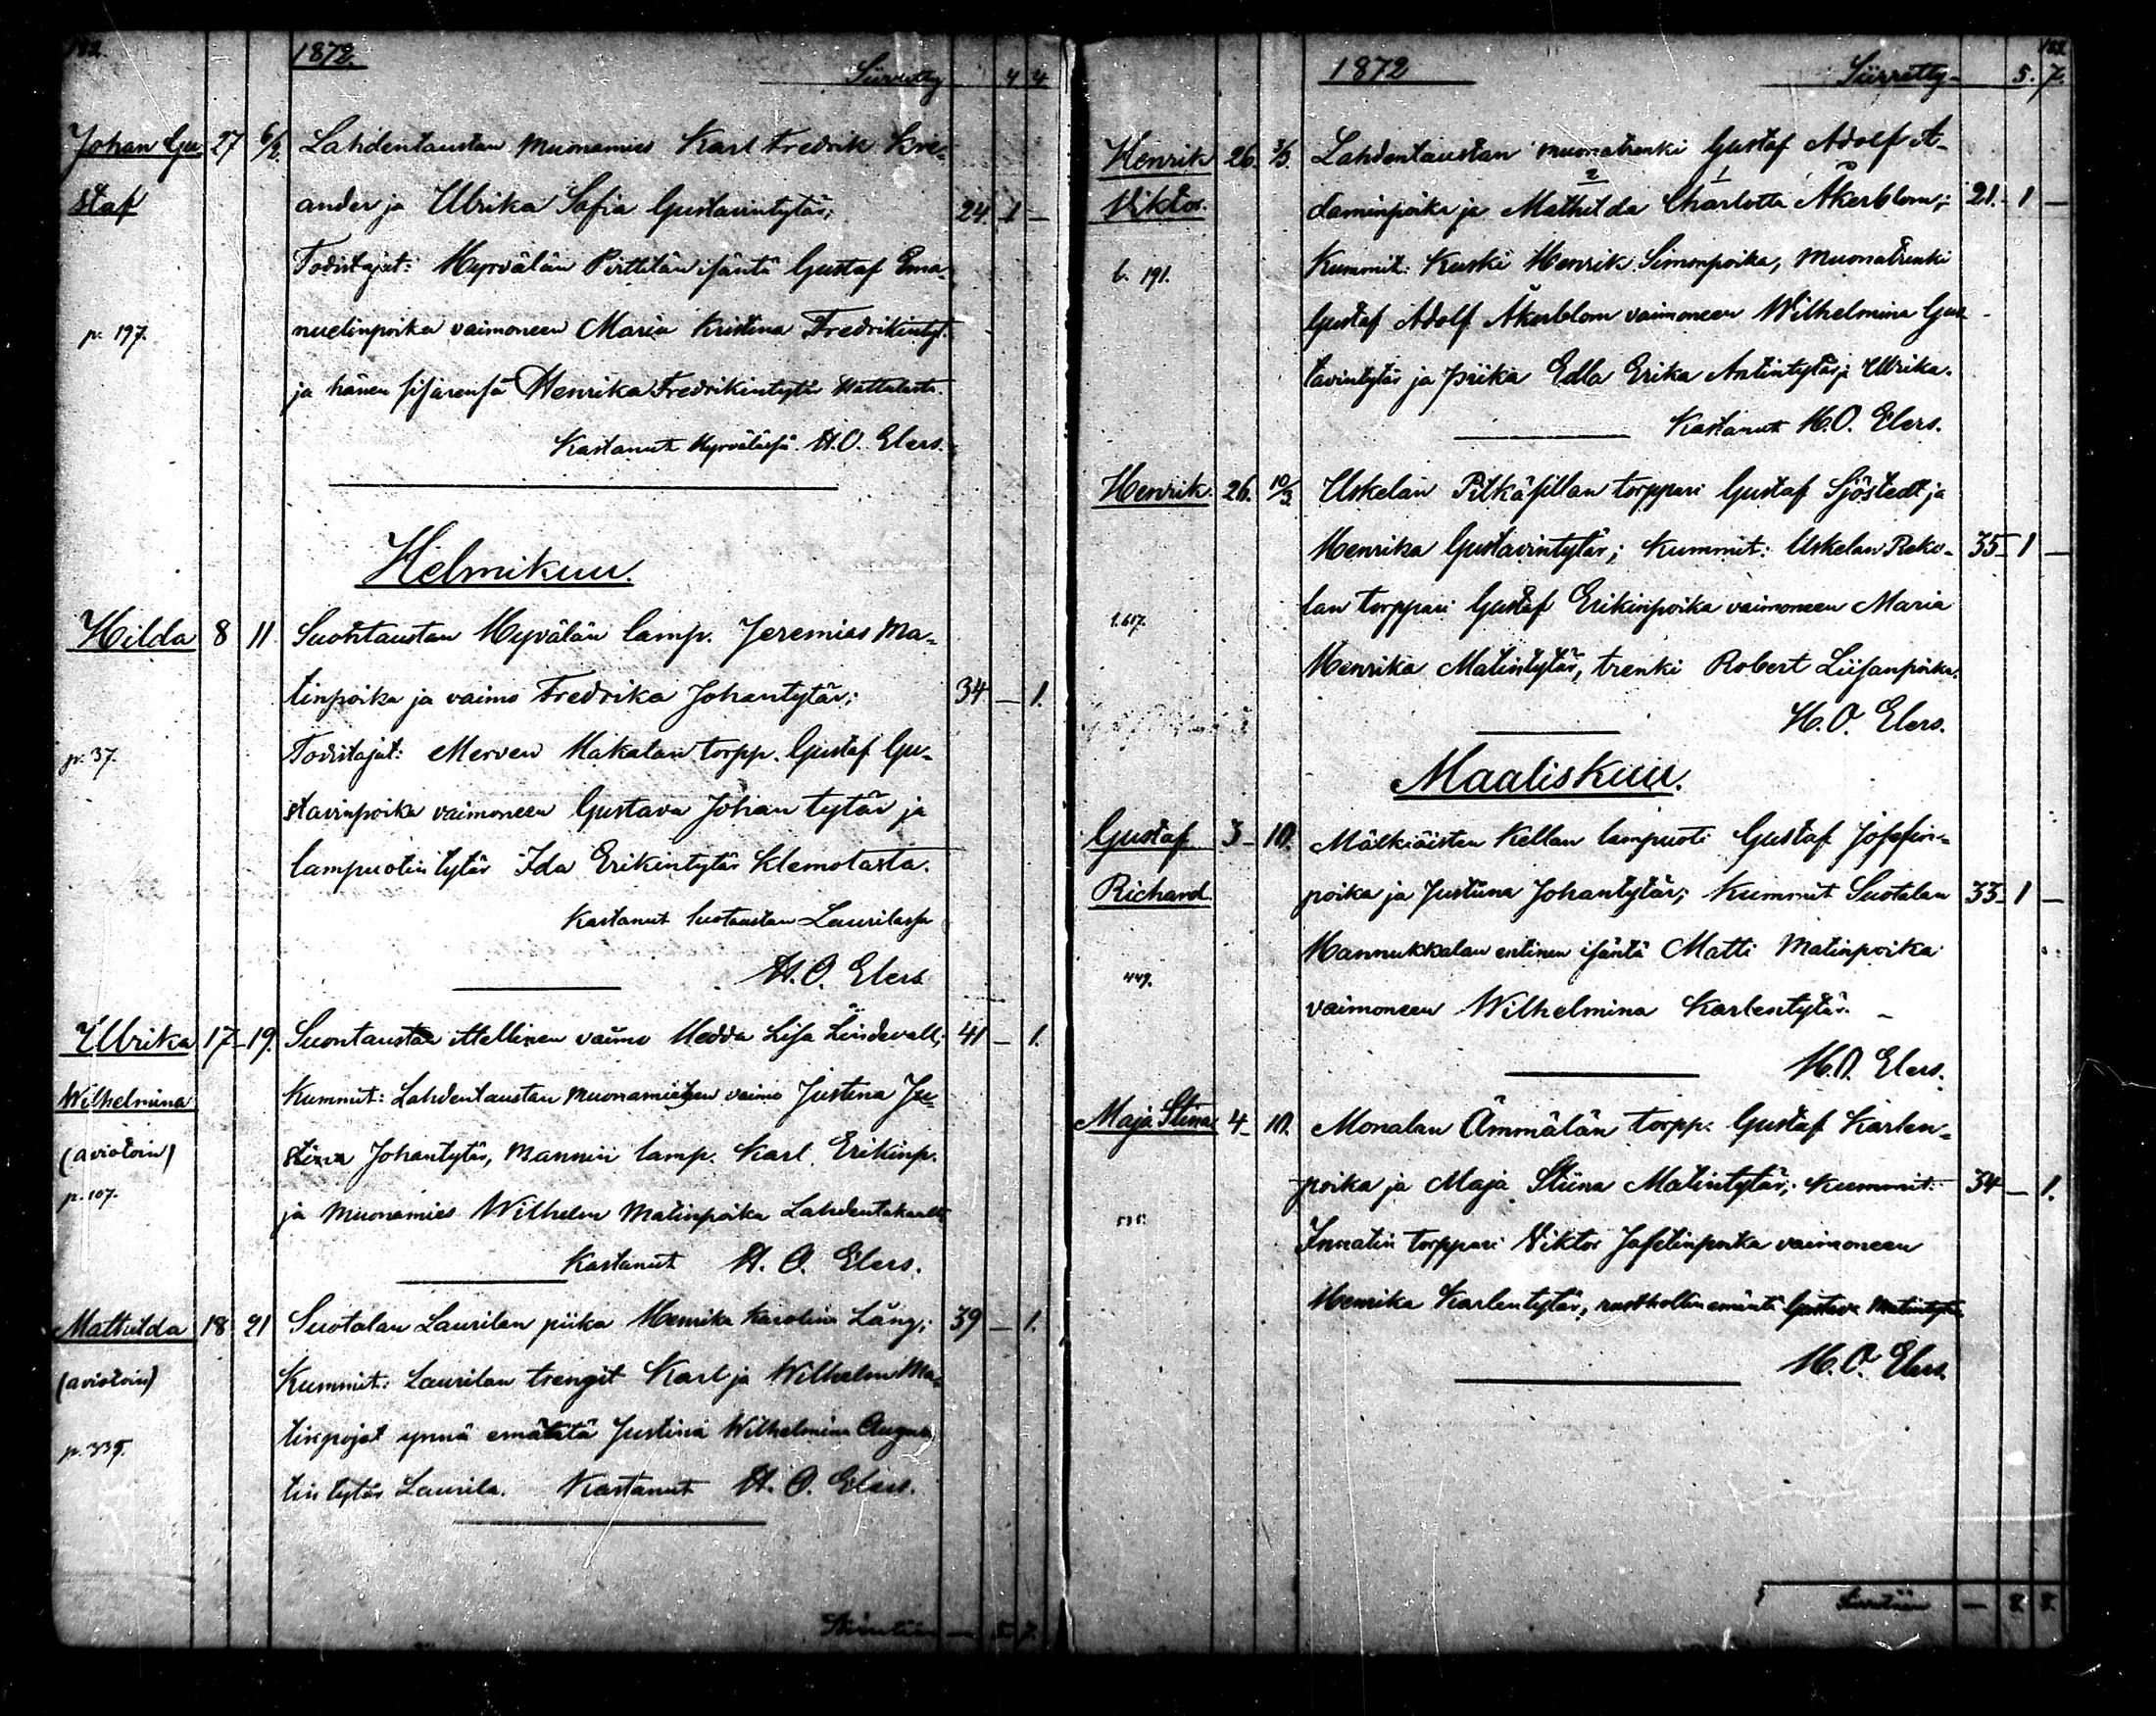 182.
1872.
Siirretty 4 4
Johan Gu- 27 6/2 Lahdentaustan Muonamies Karl Fredrik Kre-
staf ander ja Ulrika Sofia Gustavintytär; 24. 1 —
Todistajat: Myrvälän Pirttilän isäntä Gustaf Ema-
p. 197. nuelinpoika vaimoneen Maria Kristina Fredrikintyt.
ja hänen sisarensa Henrika Fredrikintytär
Kastanut Myrvälässä H. O. Elers.
Helmikuu.
Hilda 8 11 Suontaustan Myvälän lamp. Jeremias Ma-
tinpoika ja vaimo Fredrika Johantytär; 34 — 1.
p. 37. Todistajat: Merven Makatan torpp. Gustaf Gu-
stavinpoika vaimoneen Gustava Johan tytär ja
lampuotin tytär Ida Erikintytär Klemolasta.
Kastanut Suotaustan Laurilassa
H. O. Elers
Ulrika 17 19. Suontaustan ittellinen vaimo Hedda Lisa Lindevall; 41 — 1.
Wilhelmina Kummit: Lahdentaustan Muonamiehen vaimo Justina Ju-
(aviotoin) stina Johantytär, Mannin lamp. Karl Erikinp.
p. 107. ja Muonamies Wilhelm Matinpoika
Kastanut H. O. Elers.
Mathilda 18 21 Suotalan Laurilan piika Henrika Karolina Lång; 39 — 1.
(aviotoin) Kummit: Laurilan trengit Karl ja Wilhelm Ma-
p. 335. tinpojat ynnä emäntä Justina Wilhelmina Augus-
tin tytär Laurila. Kastanut H. O. Elers.
Siirretään — 5. 7.
183.
1872 Siirretty 5. 7.
Henrik 26. 3/3 Lahdentaustan muonatrenki Gustaf Adolf A-
Viktor. daminpoika ja Mathilda Charlotta Åkerblom; 21. 1 —
b. 191. Kummit: Kuski Henrik Simonpoika, Muonatrenki
Gustaf Adolf Åkerblom vaimoneen Wilhelmina Gus-
tavintytär ja piika Edla Erika Antintytär; Ulrika.
Kastanut H. O. Elers.
Henrik. 26. 10/3 Uskelan Pitkäsillan torppari Gustaf Sjöstedt ja
Henrika Gustavintytär; Kummit: Uskelan Reko- 35 1 —
1. 617. lan torppari Gustaf Erikinpoika vaimoneen Maria
Henrika Matintytär, trenki Robert Liisanpoika.
H. O. Elers.
Maaliskuu.
Gustaf 3 10. Mälkiäisten Kellan lampuoti Gustaf Josefin-
Richard. poika ja Justiina Johantytär; Kummit Suotalan 33 1 —
449. Mannukkalan entinen isäntä Matti Matinpoika
vaimoneen Wilhelmina Karlentytär.
H. O. Elers.
Maja Stina 4 10. Monalan Ämmälän torpp. Gustaf Karlen-
poika ja Maja Stiina Matintytär; Kummit: 34 — 1.
535. torppari Viktor Jafetinpoika vaimoneen
Henrika Karlentytär, rusthollin emäntä Gustava Matintytär
H. O. Elers.
Siirretään — 8. 8.